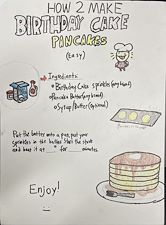 HOW 2 MAKE
BIRTHDAY CAKE
PINCAKES
(Easy)
Ingredients:
Birthday Cake sprinkles (any brand)
Pancake Batter (any brand)
Syrup/Butter (optional)
Put the batter into a pan, put your
sprinkles in the batter. Start the stove
and heat it at ° for ___ minutes.
Enjoy!